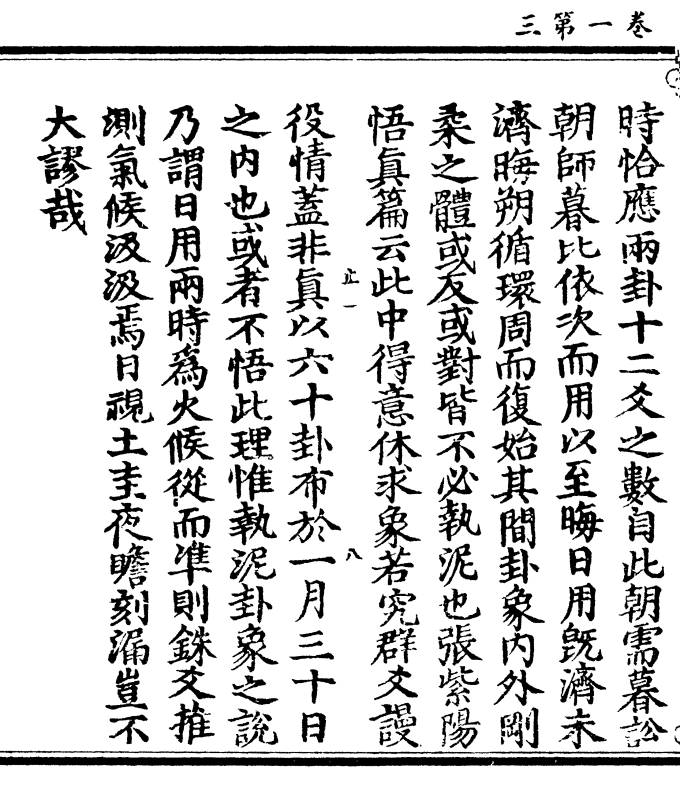 卷一第三
時恰應兩卦十二爻之數自此朝需暮訟
朝師暮比依次而用以至晦日用旣濟未
濟晦朔循環周而復始其間卦象内外剛
柔之體或反或對皆不必執泥也張紫陽
悟眞篇云此中得意休求象若究群爻謾
役情蓋非眞以六十卦布於一月三十日
之内也或者不悟此理惟執泥卦象之說
乃謂日用兩時爲火候從而準則銖爻推
測氣候汲汲焉日視土圭夜瞻刻漏豈不
大謬哉
止一
八